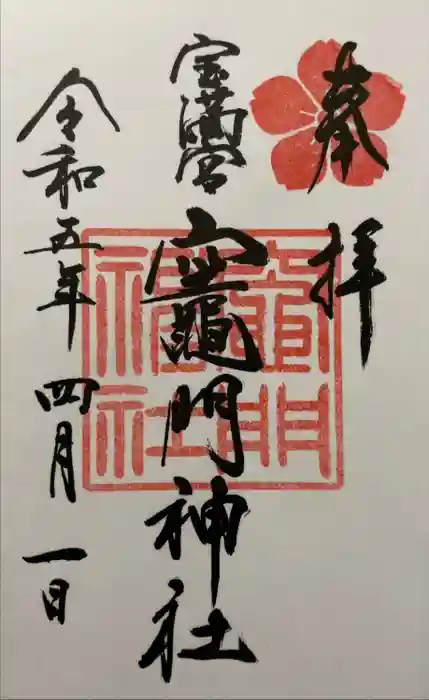 奉拝
宝満宮
竈門神社
竈門神社
令和五年四月一日